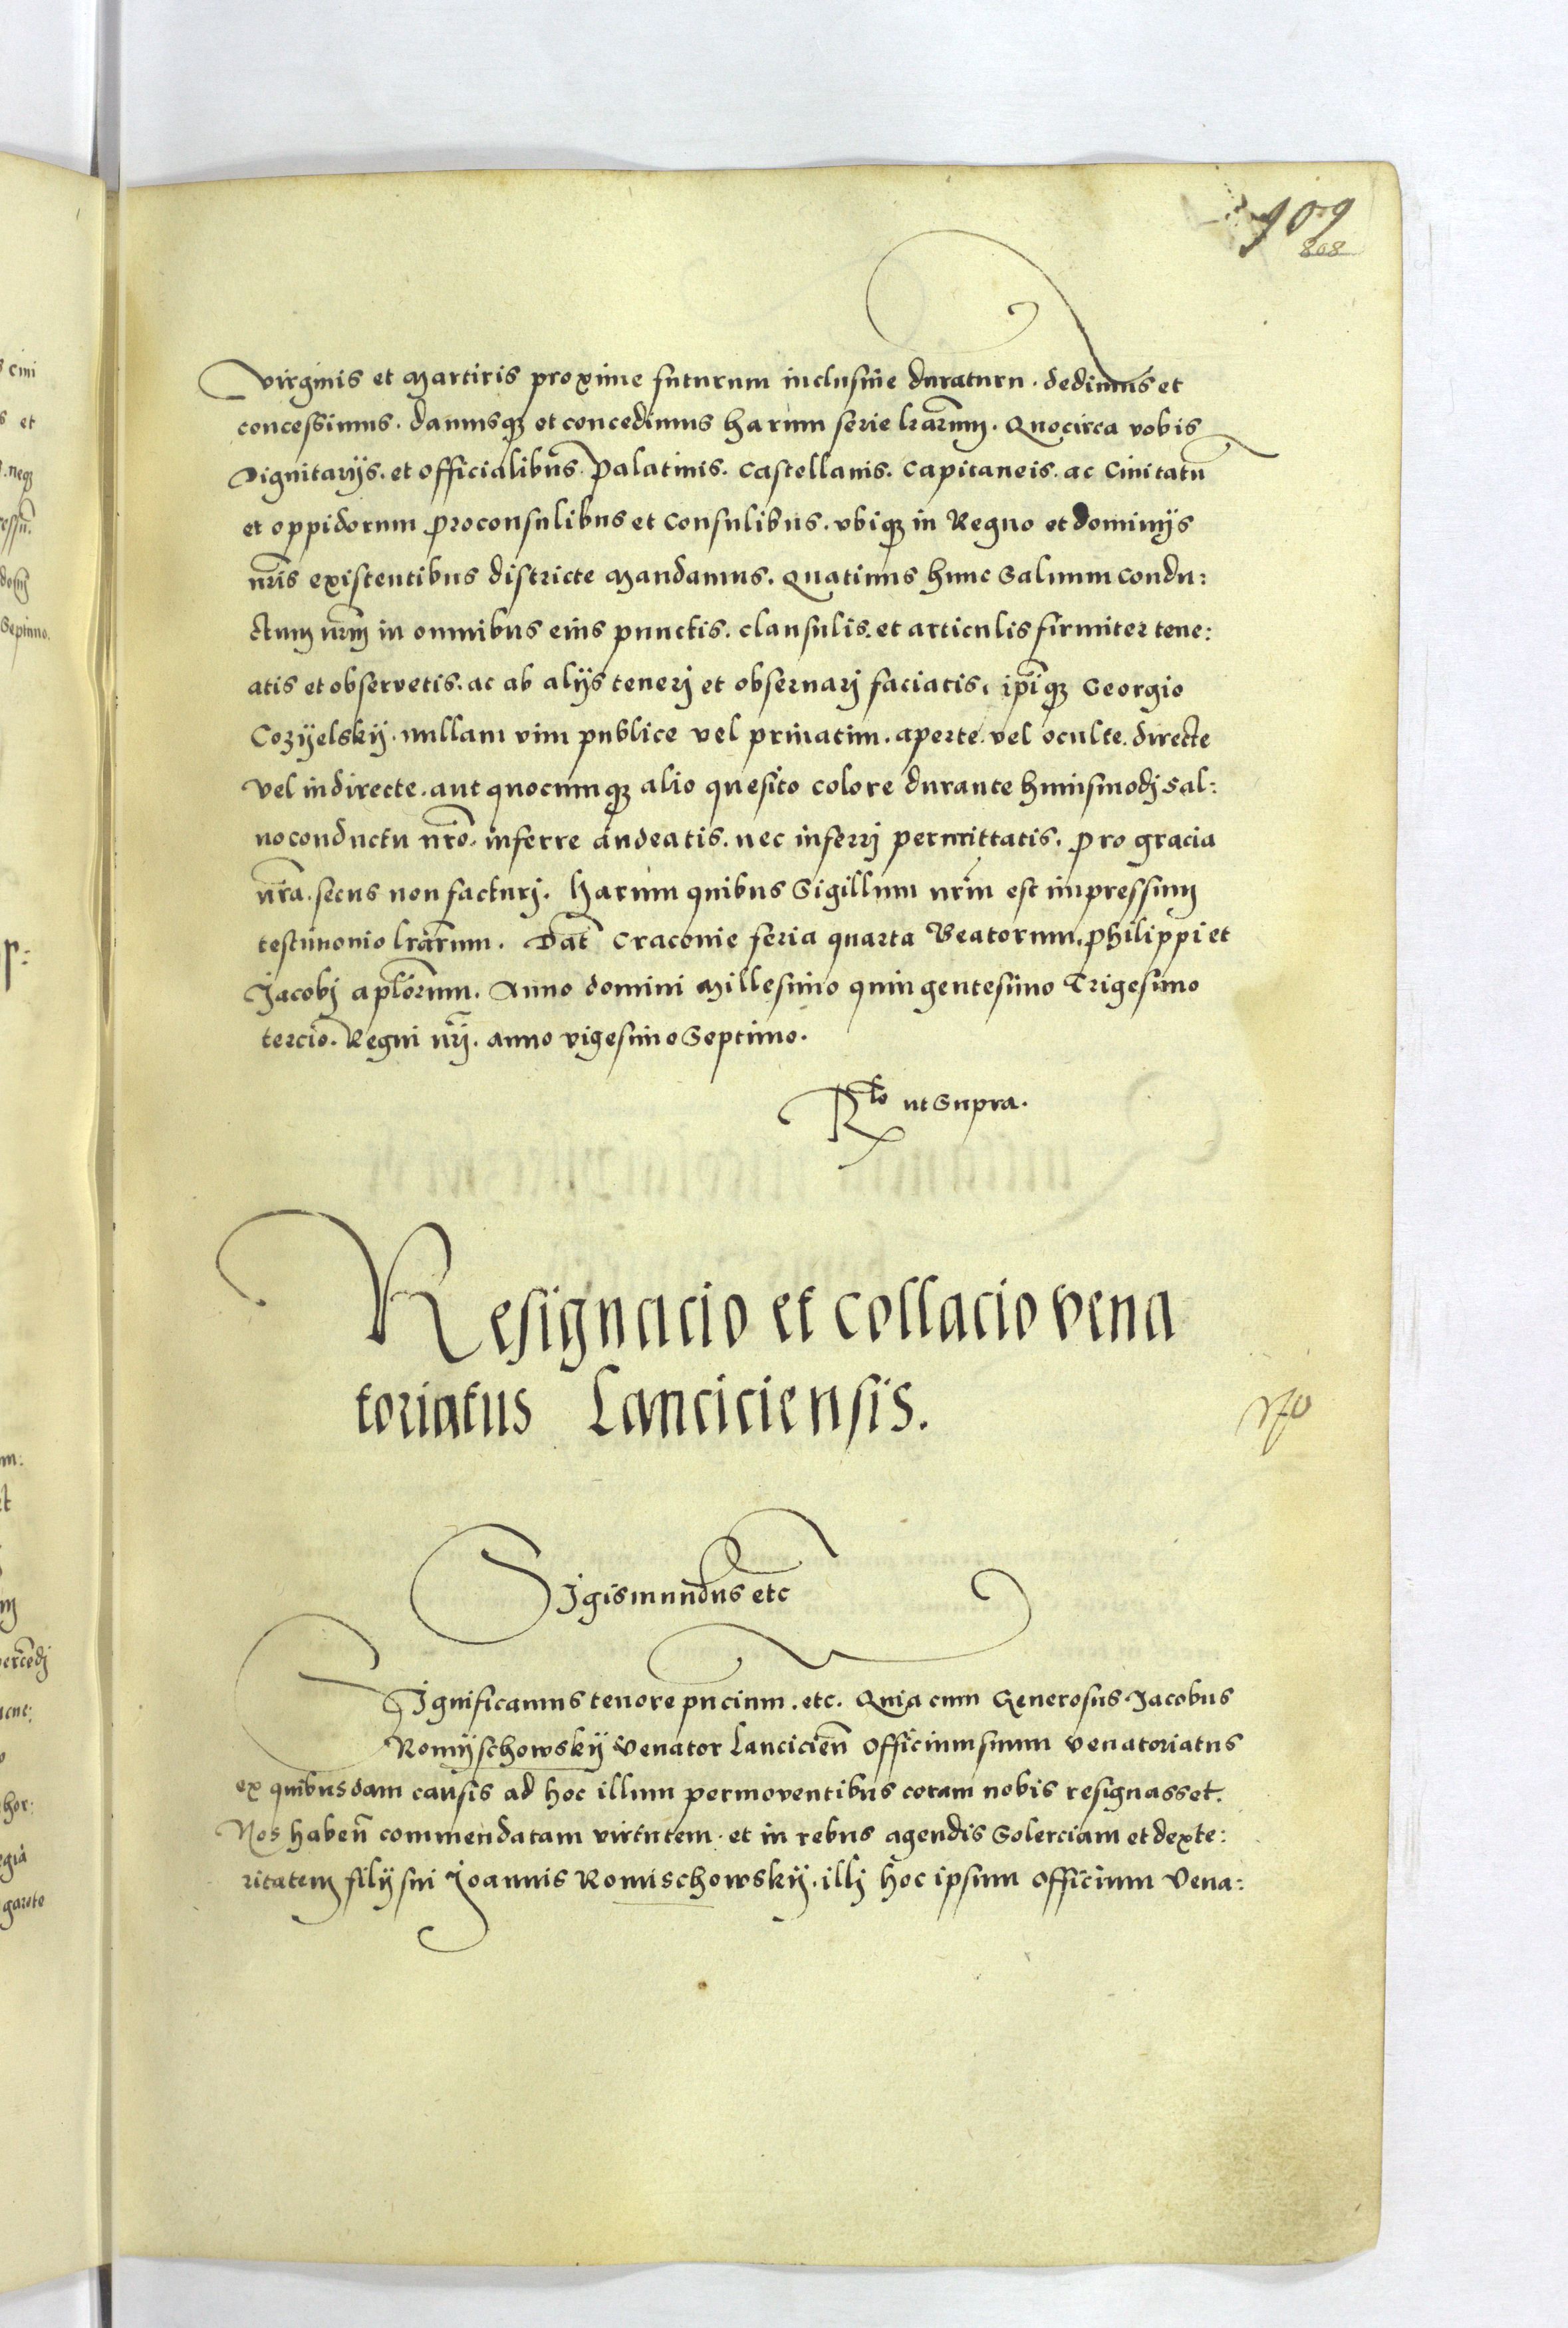 909
808
virginis et Martiris proxime futurum inclusiue duraturu . dedimus et
concessimus . damusqȝ et concedimus harum serie lrarum̃ . Quocirca vobis
Dignitarijs . et officialibus . Palatinis . Castellanis . Capitaneis . ac Ciuitatũ
et oppidorum proconsulibus et Consulibus . vbiqȝ in Regno et dominijs
nr̃is existentibus districte Mandamus . Quatinus hunc Saluum condu:
ctum nrm̃ in omnibus eius punctis . clausulis . et articulis firmiter tene:
atis et observetis . ac ab alijs tenerj et obseruarj faciatis . ip̃iqȝ Georgio
Cozÿelskÿ . nullam vim publice vel priuatim . aperte . vel oculte . directe
vel indirecte . aut quocumqȝ alio quesito colore durante huiusmodj Sal:
uoconductu nr̃o . inferre audeatis . nec inferrj permittatis . pro gracia
nr̃a . secus non facturj . Harum quibus Sigillum nrm̃ est impressum
testimonio lrãrum . Dat̃ Cracouie feria quarta Beatorum . Philippi et
Jacobj aplõrum . Anno domini Millesimo quingentesimo Trigesimo
tercio . Regni nr̃j . anno vigesimo Septimo .
Rto ut Supra .
Resignacio et collacio vena
toriatus Lanciciensis .
Sigismundus etc
Significamus tenore pñcium . etc . Quia cum Generosus Jacobus
Romÿschowskÿ Venator Lancicieñ officium suum venatoriatus
ex quibusdam causis ad hoc illum permoventibus coram nobis resignasset .
Nos habeñ commendatam virtutem . et in rebus agendis Solerciam et dexte:
ritatem filij sui Joannis Romischowskÿ . illj hoc ipsum officium Vena: